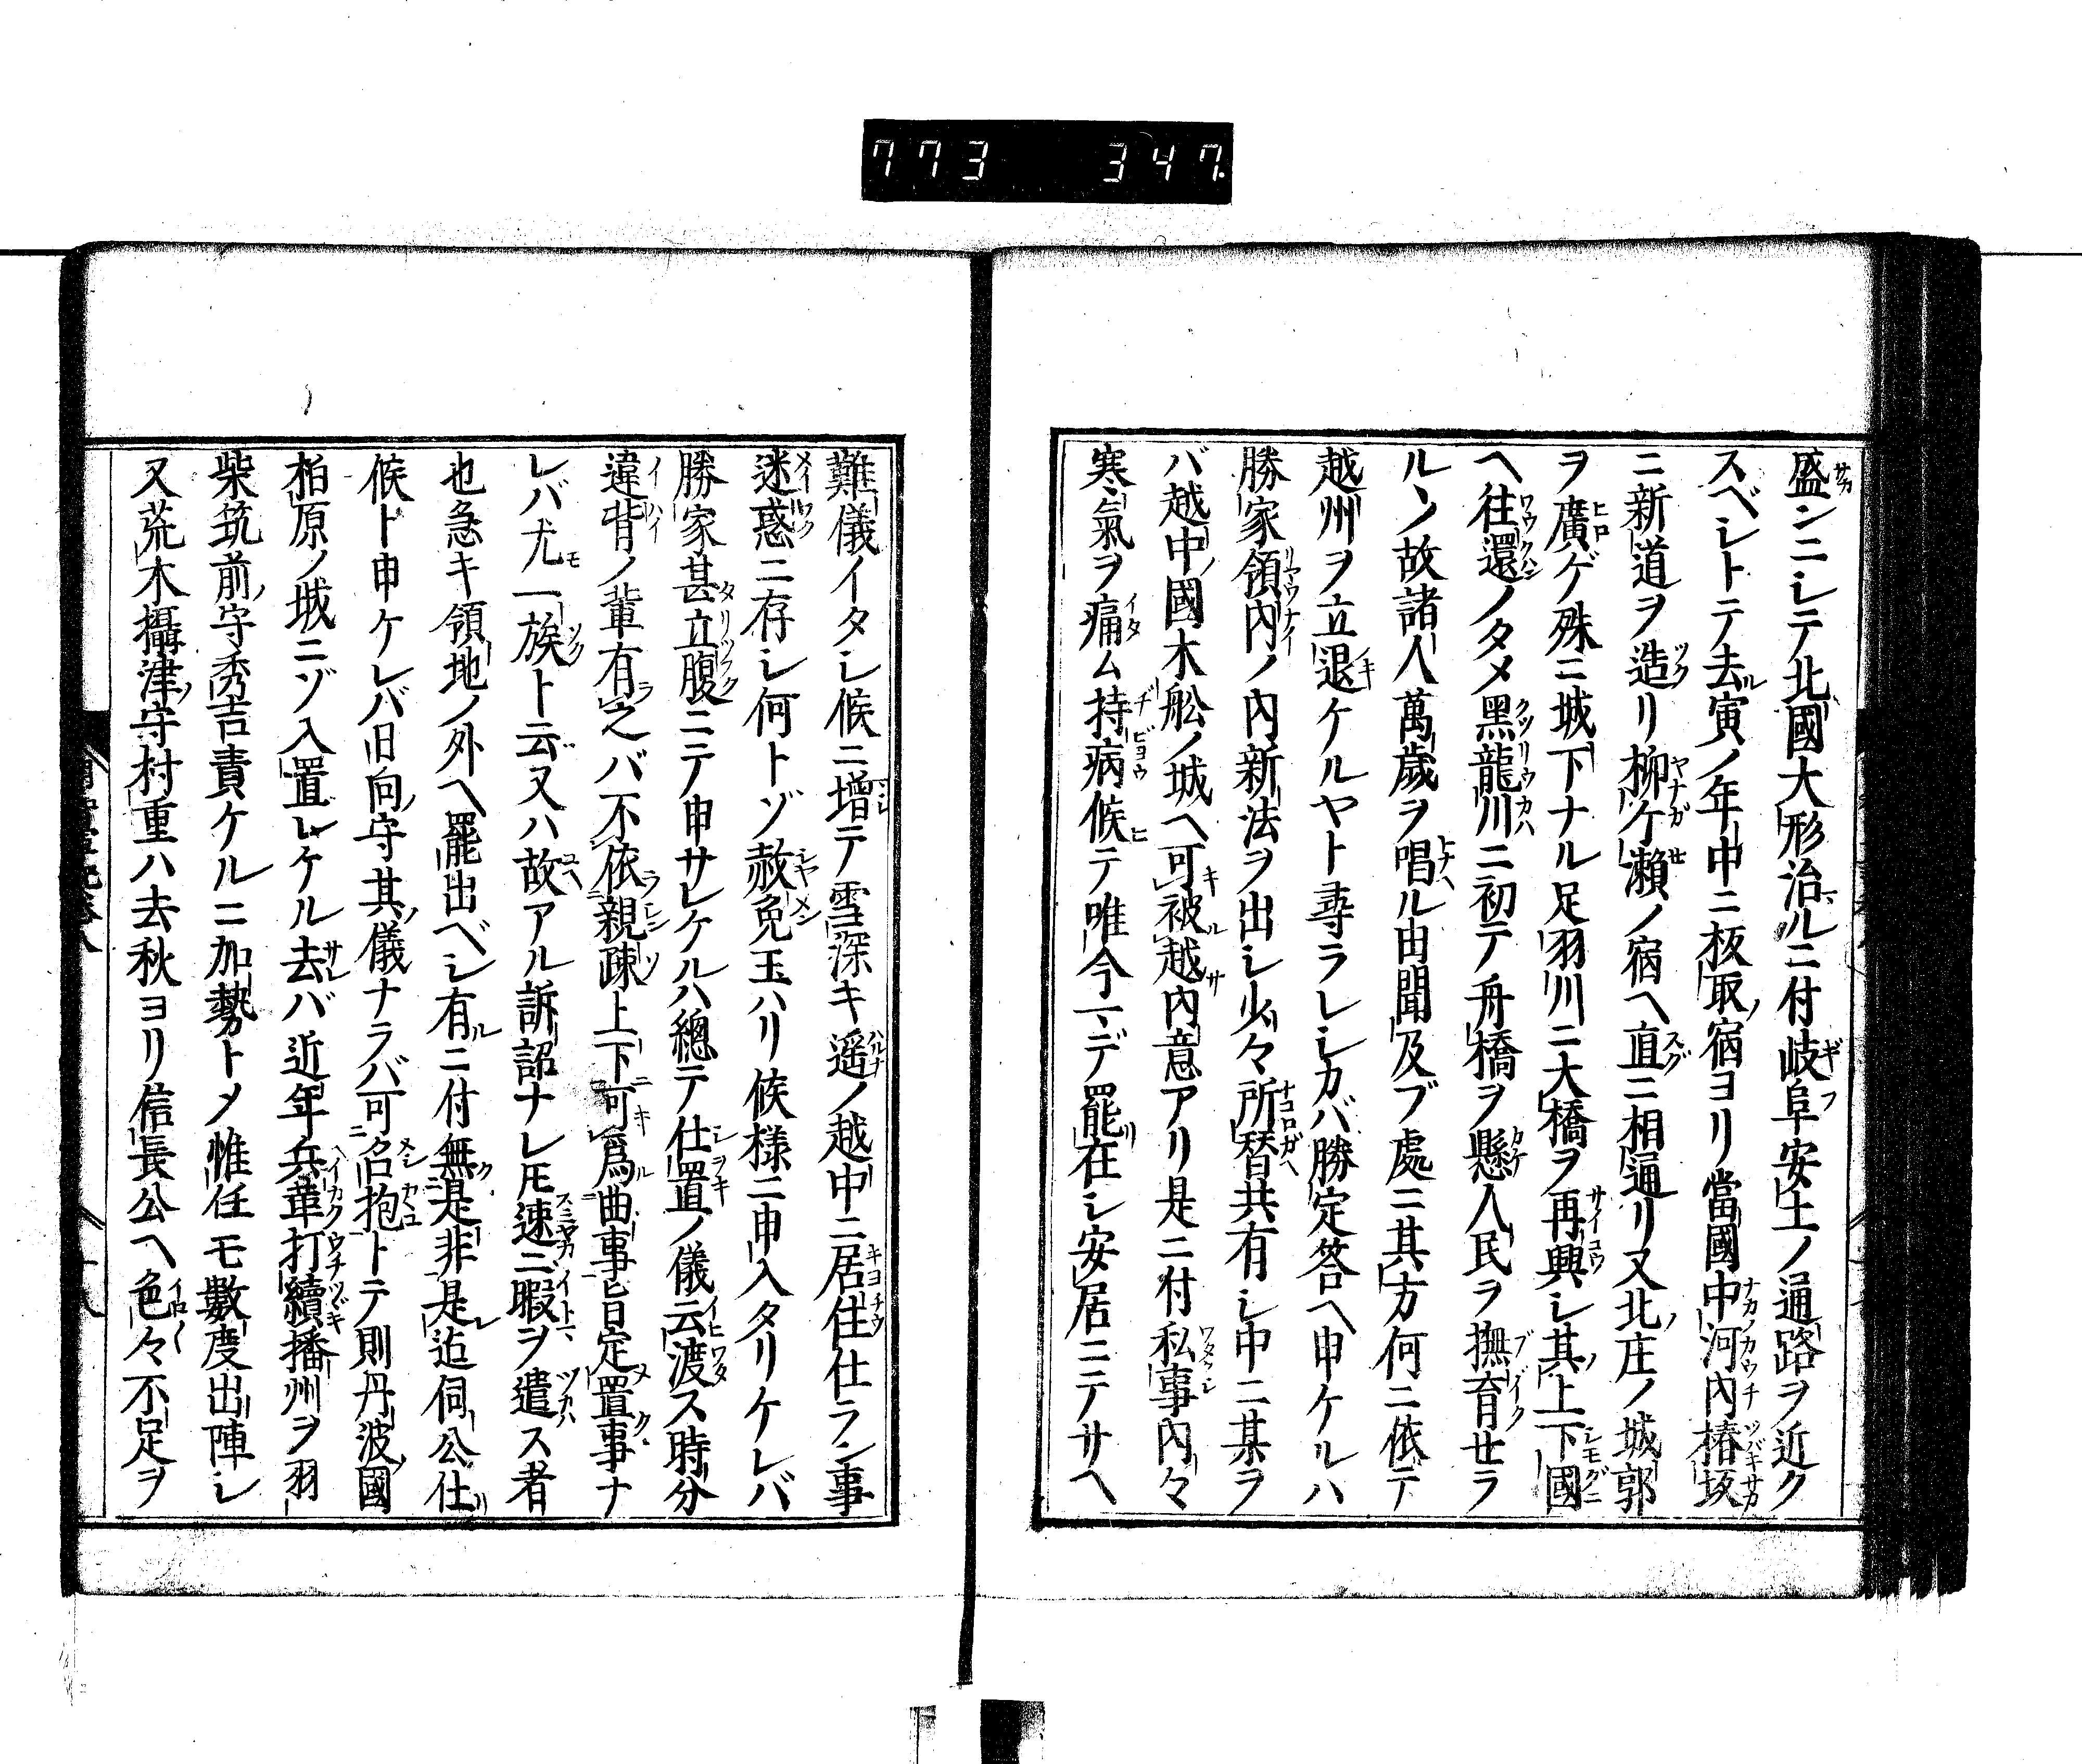 773 347.
盛ンニシテ北國大形治ルニ付岐阜安土ノ通路ヲ近ク
スベシトテ去寅ノ年中ニ板取宿ヨリ當國中河内椿坂
ニ新道ヲ造リ柳ケ瀬ノ宿ヘ直ニ相通リ又北庄ノ城郭
ヲ廣ゲ殊ニ城下ナル足羽川ニ大橋ヲ再興シ其上下國
ヘ往還ノタメ黑龍川ニ初テ舟橋ヲ懸人民ヲ撫育せラ
ルヽ故諸人萬歲ヲ唱ル由聞及ブ處ニ其方何ニ依テ
越州ヲ立退ケルヤト尋ラレシカバ勝定答ヘ申ケルハ
勝家領内ノ内新法ヲ出シ少々所替共有シ中ニ某ヲ
バ越中國木舩ノ城ヘ可被越内意アリ是ニ付私事内々
寒氣ヲ痛ム持病候テ唯今マデ罷在シ安居ニテサヘ
難儀イタシ候ニ增テ雪深キ遥ノ越中ニ居住仕ラン事
迷惑ニ存シ何トゾ赦免玉ハリ候様ニ申入タリケレバ
勝家甚立腹ニテ申サレケルハ總テ仕置ノ儀云渡ス時分
違背ノ輩有之バ不依親疎上下可爲曲事旨定置事ナ
レバ尤一族ト云又ハ故アル訴詔ナレ𪜈速ニ暇ヲ遣ス者
也急キ領地ノ外ヘ罷出ベシ有ルニ付無是非是迄伺公仕
候ト申ケレバ日向守其儀ナラバ可召抱トテ則丹波國
柏原ノ城ニゾ入置レケル去バ近年兵革打續播州ヲ羽
柴筑前守秀吉責ケルニ加勢トメ惟任モ數度出陣シ
又荒木攝津守村重ハ去秋ヨリ信長公ヘ色々不足ヲ